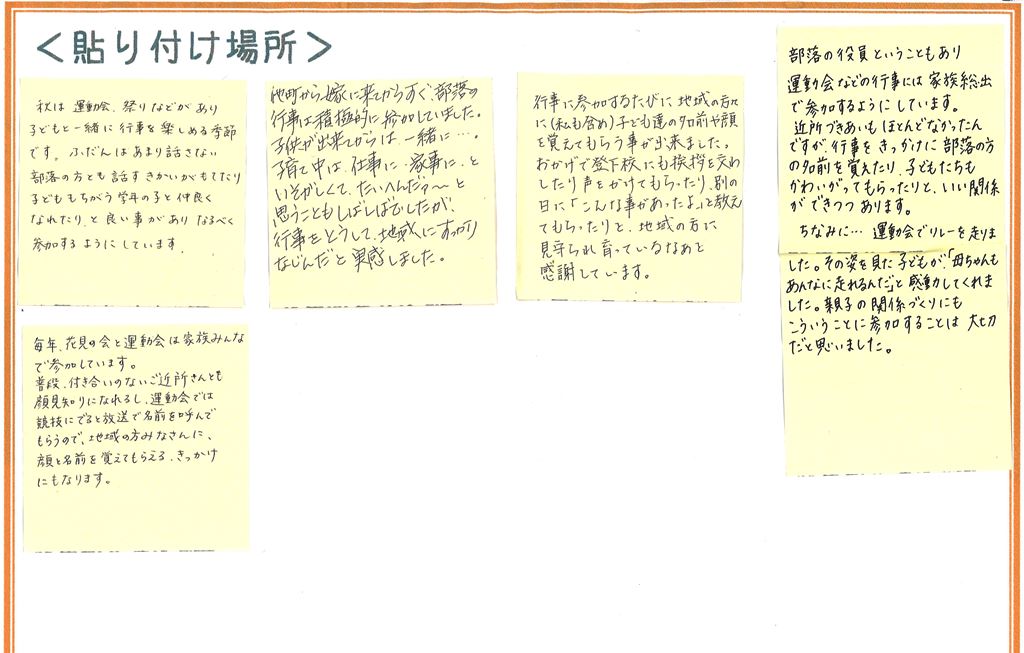 ＜貼り付け場所＞
秋は 運動会、祭りなどがあり
子どもと一緒に行事を楽しめる季節
です。ふだんはあまり話さない
部落の方とも話すきかいがもてたり
子どももちがう学年の子と仲良く
なれたり、と良い事があり なるべく
参加するようにしています。
他町から嫁に来てからすぐ、部落の
行事は積極的に参加していました。
子供が出来てからは、一緒に…。
子育て中は、仕事に、家事に、と
いそがしくて、たいへんだァ～と
思うこともしばしばでしたが、
行事をとうして、地域にすっかり
なじんだと実感しました。
行事に参加するたびに、地域の方々
に（私も含め）子ども達の名前や顔
を覚えてもらう事が出来ました。
おかげで登下校にも挨拶を交わ
したり声をかけてもらったり、別の
日に「こんな事があったよ」って教え
てもらったりと、地域の方に
見守られ育っているなぁと
感謝しています。
部落の役員ということもあり
運動会などの行事には家族総出
で参加するようにしています。
近所づきあいもほとんどなかったん
ですが、行事をきっかけに部落の方
の名前を覚えたり、子どもたちも
かわいがってもらったりと、いい関係
ができつつあります。
ちなみに… 運動会でリレーを走りま
した。その姿を見た子どもが、「母ちゃんも
あんなに走れるんだ」と感動してくれま
した。親子の関係づくりにも
こういうことに参加することは大切
だと思いました。
毎年、花見の会と運動会は家族みんな
で参加しています。
普段、付き合いのないご近所さんとも
顔見知りになれるし、運動会では
競技にでると放送で名前を呼んで
もらうので、地域の方みなさんに、
顔と名前を覚えてもらえる、きっかけ
にもなります。